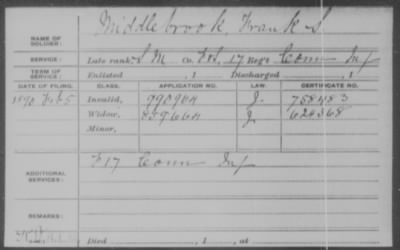 NAME OF SOLDIER: Middlebrook, Frank S
SERVICE: Late rank, S M Co. F&S, 17 Reg't Conn Inf
TERM OF SERVICE: Enlisted , 1 Discharged , 1
DATE OF FILING. CLASS. APPLICATION NO. LAW. CERTIFICATE NO.
1890 Feb 5 Invalid, J. 758483
Widow, J. 624368
Minor,
ADDITIONAL SERVICES: F 17 Conn Inf
REMARKS:
Died , 1 , at